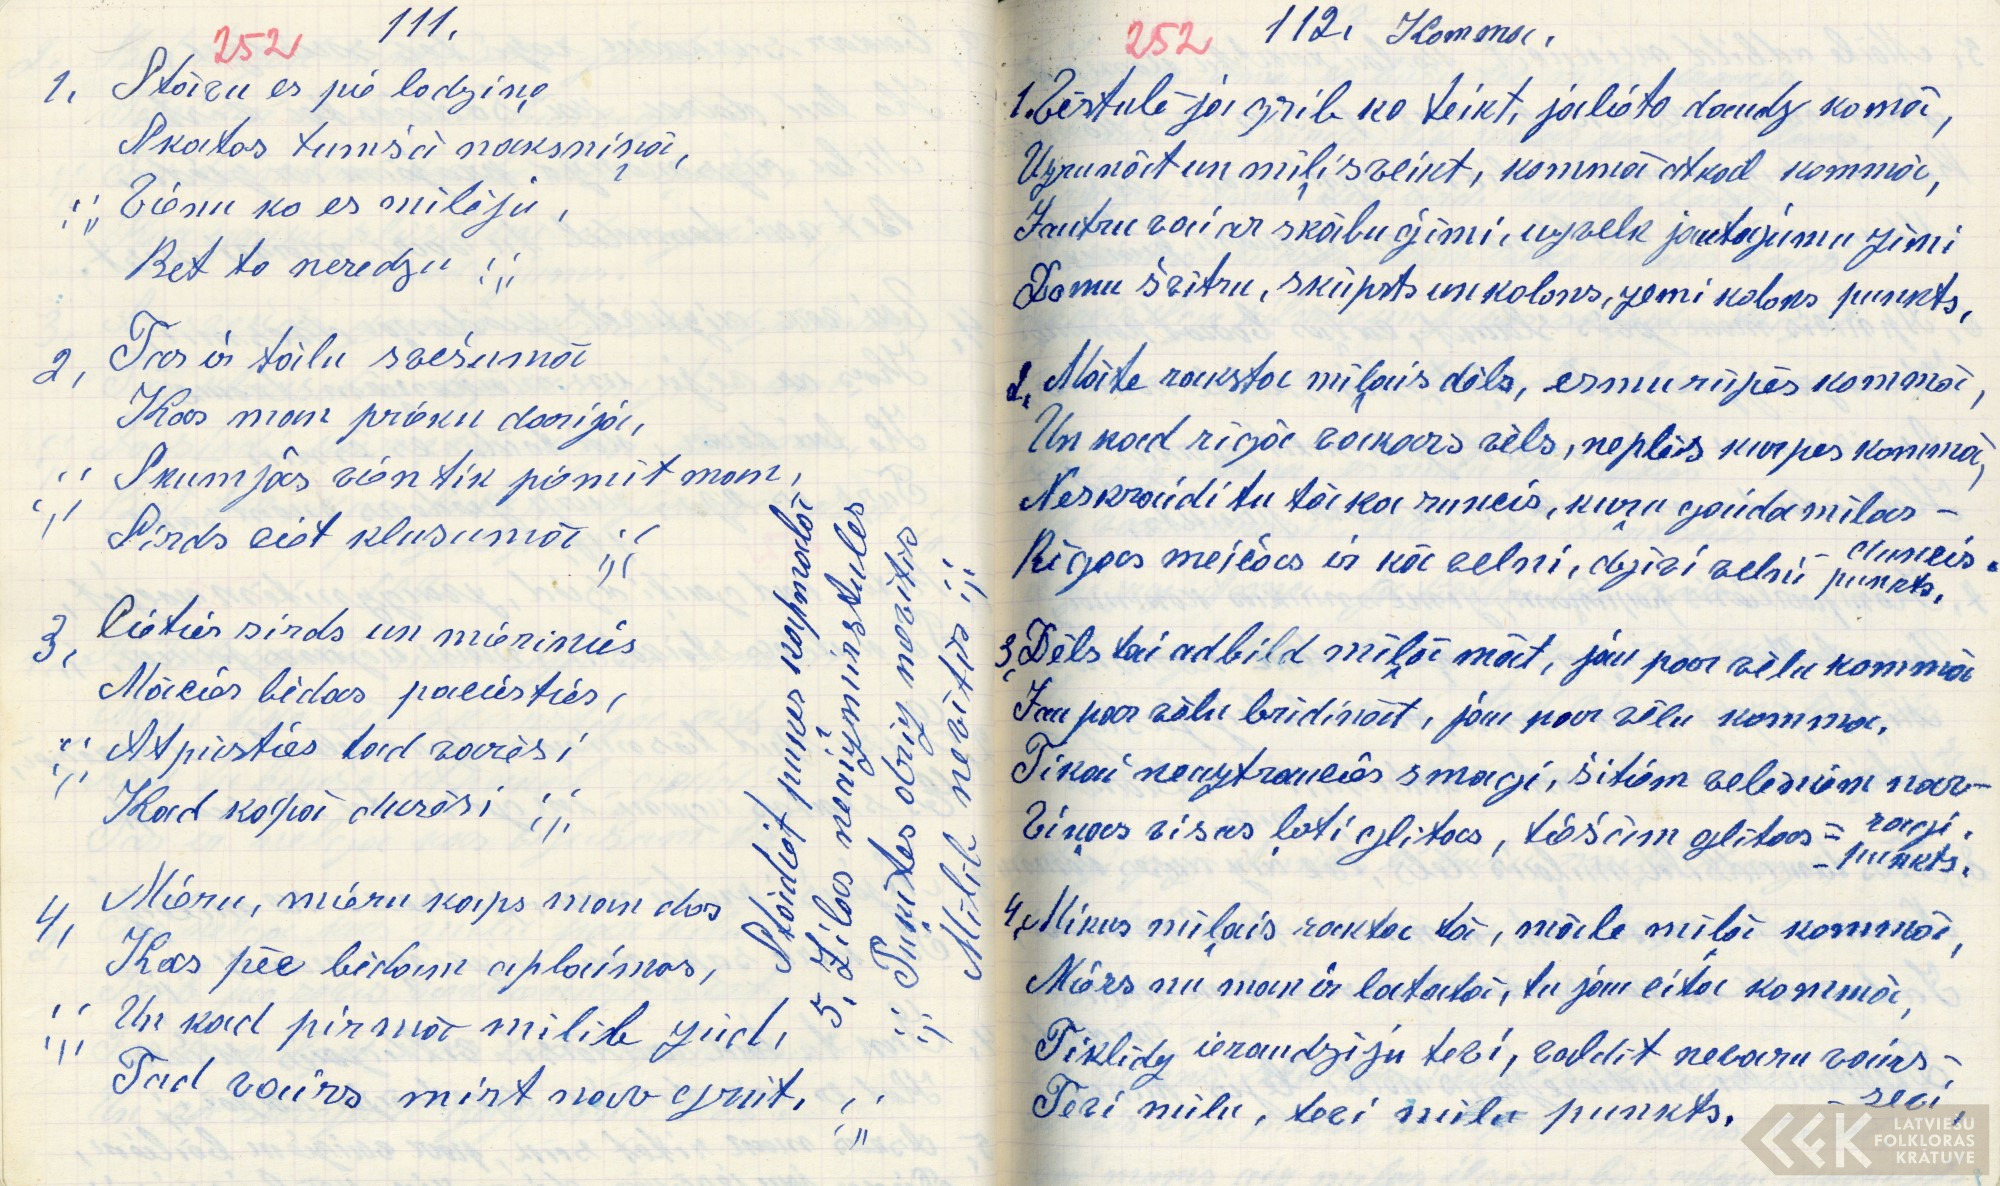 252 111.
1, Stāvu es pie lodziņa
Skatos tumšā naksniņā,
;; Vienu ko es mīlēju,
Bet to neredzu ;;
2, Tas ir tālu svešumā
Kas man prieku darīja,
;; Skumjās vien tik piemīt man,
Sirds ciet klusumā ;;
3, Cieties sirds un mierinies
Mācies bēdas paciesties,
;; Atpūsties tad varēsi
Kad kapā dusēsi ;;
4, Mieru, mieru kaps man dos
Kas pēc bēdam aplaimos,
;; Un kad pirmā mīlib zūd,
Tad vairs mirt nav grūt, ;;
Stādiet puķes kapmalā
5, Zilas neaizmirstules
;; Puķītes driz novītīs
Mīlib nevītīs ;;
252 112. Komma.
1. Vēstulē ja grib ko teikt, jalieto daudz komā,
Uzrunāt un mīļi sveikt, kommā atkad kommā,
Jautru vai ar skābu ģīmi, uzvelk jautajumu zīmi
Domu švītru, skūpsts un kolons, zemi kolons punkts.
2, Māte raksta mīļais dēls, esmu rūpēs kommā,
Un kad rīgā vakars vēls, neplēs kurpes kommā,
Neskraidi tu tā ka runcis, kuŗu gaida mīlas –
Rīgas meičas ir kā velni, dzīvi velni – duncis.
punkts.
3, Dēls tai adbild mīļā māt, jau par vēlu kommā
Jau par vēlu brīdināt, jau par vēlu komma.
Tikai neuztraucies smagi, šitiem velēniem nav–
Viņas visas ļoti glītas, tiešām glītas = ragi.
– punkts.
4, Mikus mīļais rakta tā, māle mīļā kommā,
Miers nu man ir latatā, tu jau eita kommā,
Tiklīdz ieraudzīju tevi, valdīt nevaru vairs –
Tevi mīlu, tevi mīlu punkts. – sevi,
LATVIEŠU
FOLKLORAS
KRĀTUVE